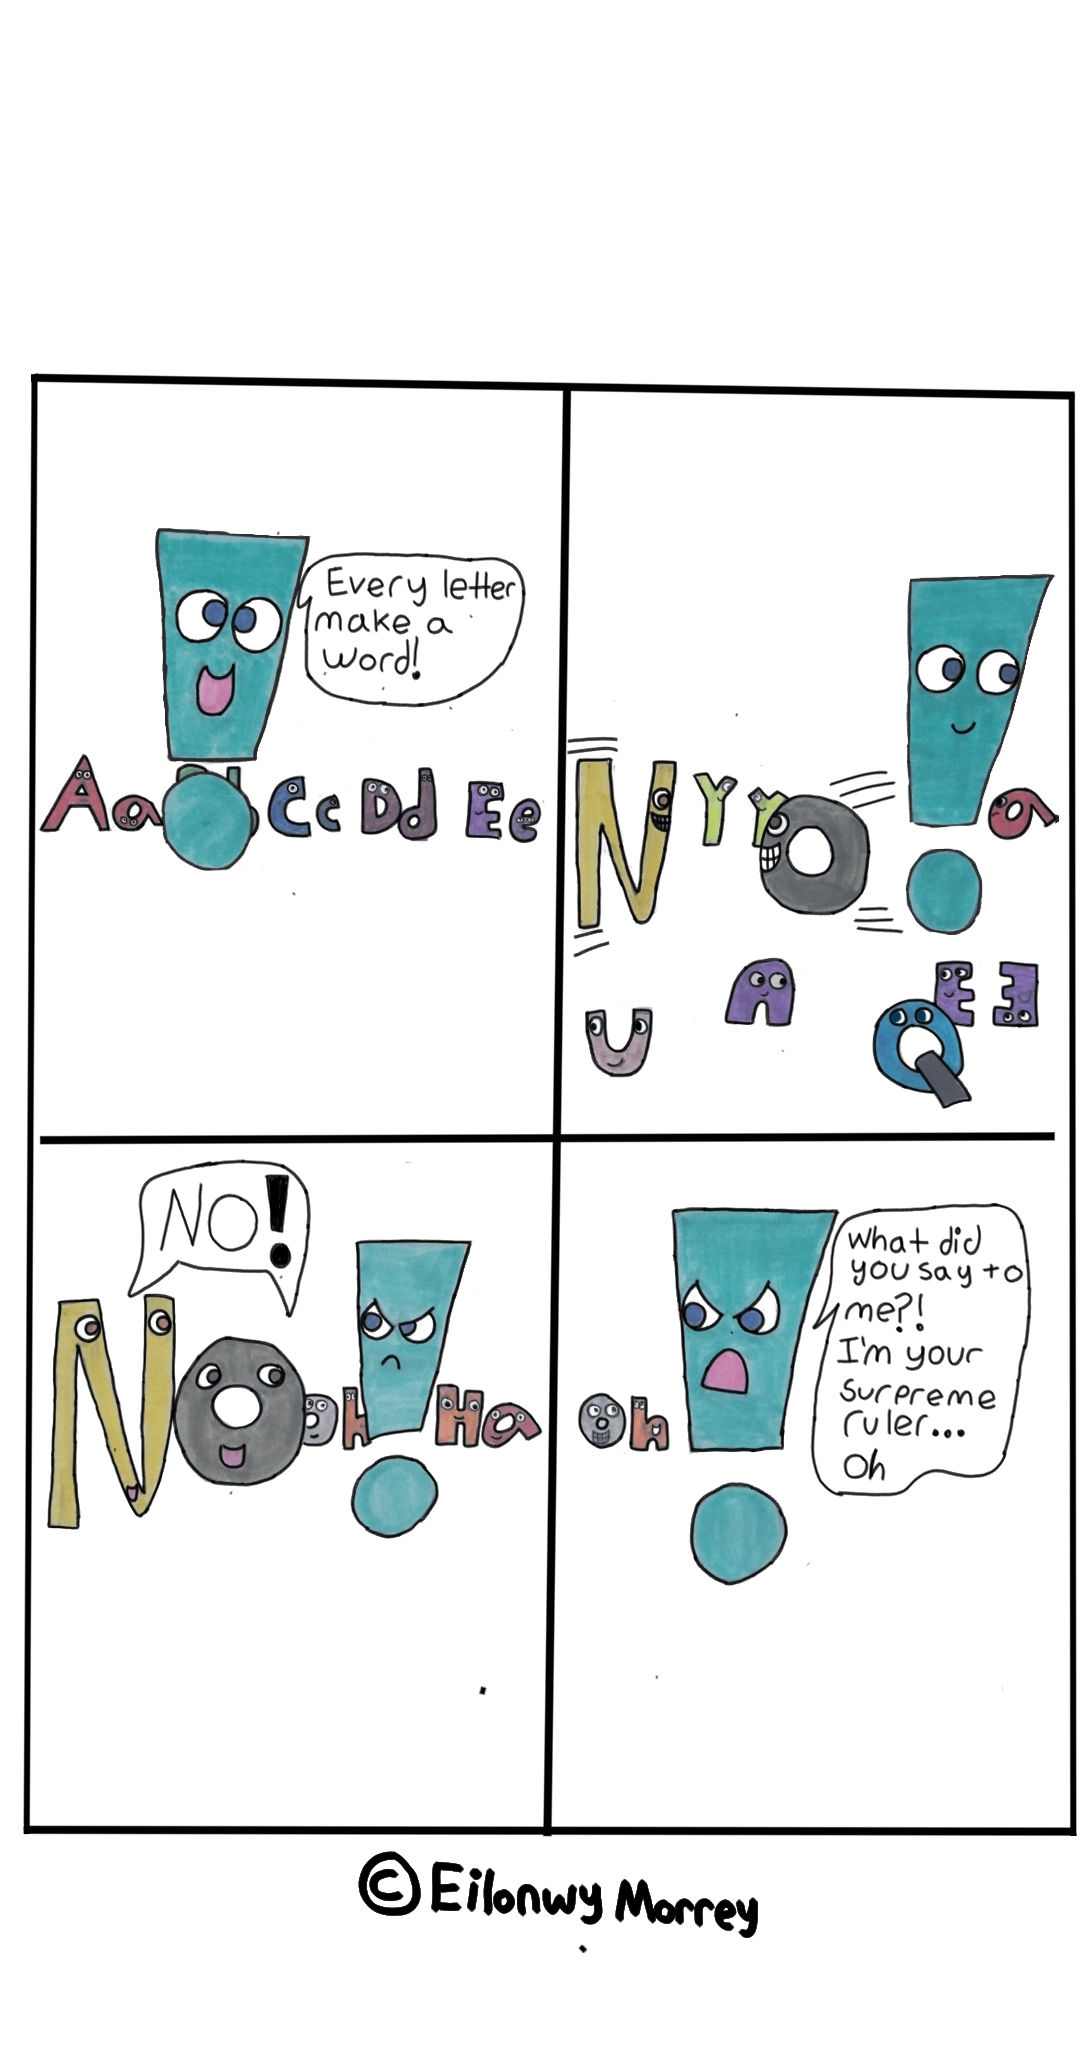 Every letter
make a
word!
Aa b Cc Dd Ee
N Y Y O ! a
U A E E
Q
NO!
NO oh ! Ha
What did
you say to
me?!
I'm your
surpreme
ruler...
Oh
oh !
© Eilonwy Morrey